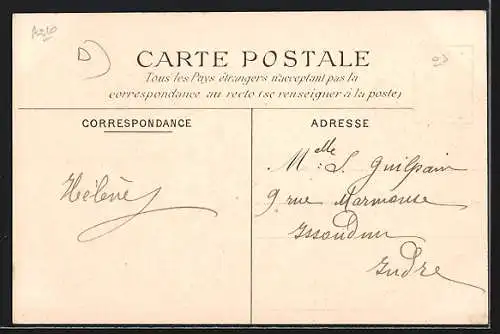 CARTE POSTALE
Tous les Pays étrangers n'acceptant pas la
correspondance au recto (se renseigner à la poste)
CORRESPONDANCE
ADRESSE
Hélène
Melle S. Guilpain
9 rue Marmouse
Issoudun
Indre